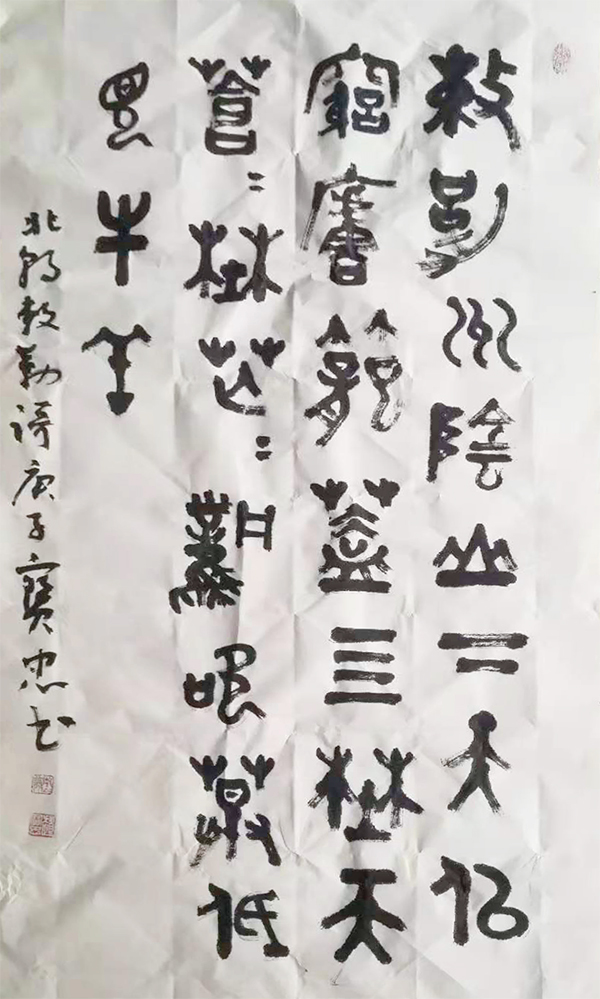 敕勒川陰山下天似
穹廬籠蓋四埜天
蒼〻埜茫〻風吹草低
見牛羊
北朝敕勒謌庚子寶忠书